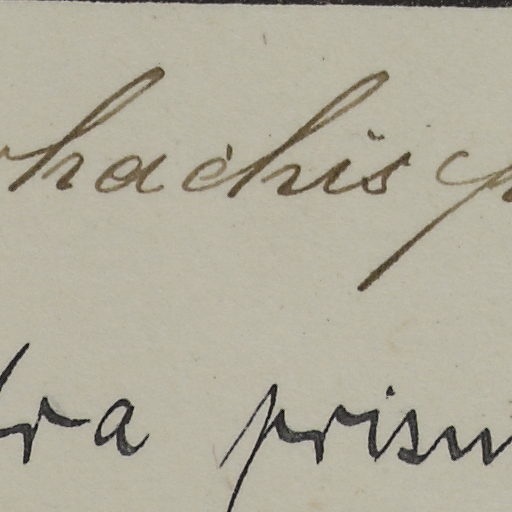 rhachis p
ra prism